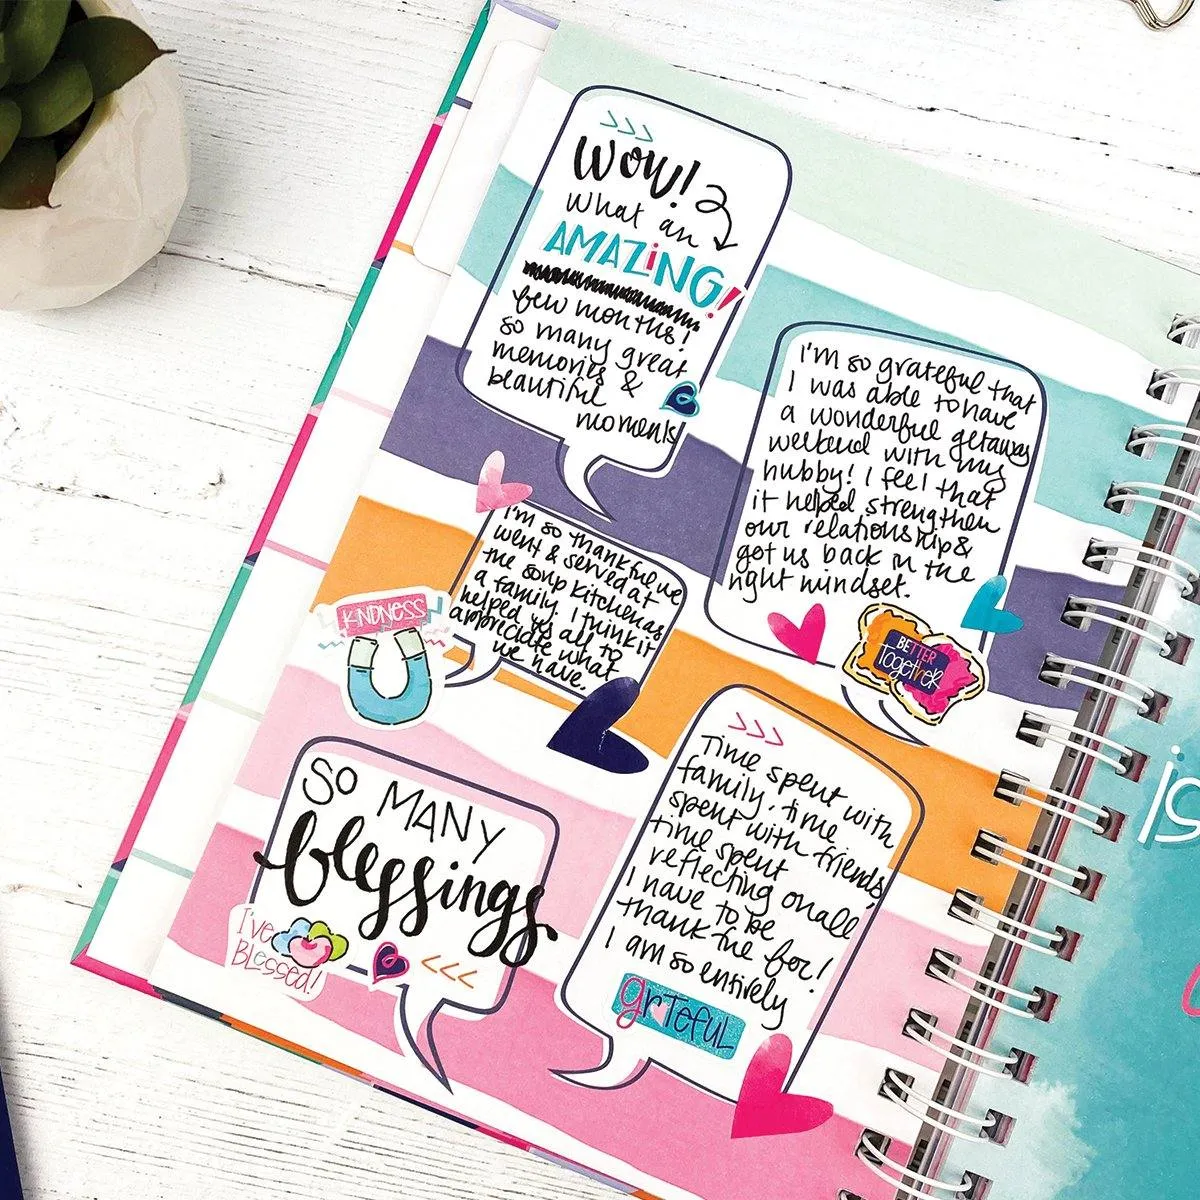 WOW!
What an
AMAZiNG!
few months!
so many great
memories &
beautiful
moments
I'm so grateful that
I was able to have
a wonderful getaway
weekend with my
hubby! I feel that
it helped strengthen
our relationship &
got us back in the
right mindset.
BETTER
TogetheR
I'm so thankful we
went & served at
the soup kitchen as
a family. I think it
helped us all to
appreciate what
we have.
KiNDNESS
SO MANY
blessings
I've
BLessed!
Time spent with
family, time
spent with friends,
time spent
reflecting on all
I have to be
thankful for!
I am so entirely
grTefuL
is